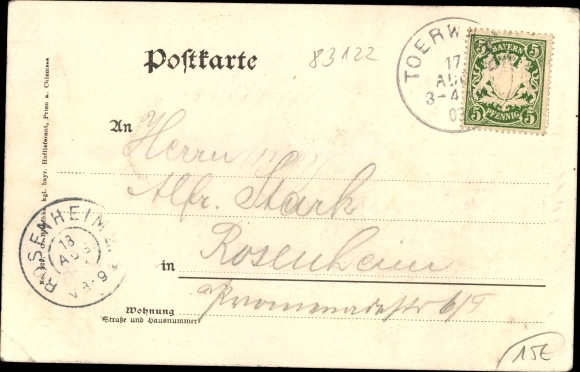 Postkarte
83122
TOERW
17
AUG
3-4
03
5 BAYERN 5
5 PFENNIG 5
An
Herrn
Alfr. Stark
Rosenheim
in
Promenadestr 6/I
Wohnung
(Straße und Hausnummer)
ROSENHEIM
18
AUG
V 8-9
kgl. bayr. Hoflieferant, Prien a. Chiemsee
15€